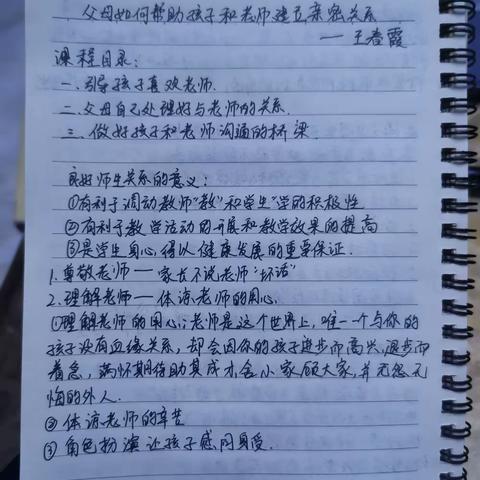 父母如何帮助孩子和老师建立亲密关系
——王春霞
课程目录:
一.引导孩子喜欢老师.
二.父母自己处理好与老师的关系.
三.做好孩子和老师沟通的桥梁.
良好师生关系的意义:
①有利于调动教师"教"和学生"学"的积极性
②有利于教学活动的开展和教学效果的提高
③是学生身心得以健康发展的重要保证.
1.尊敬老师——家长不说老师"坏话"
2.理解老师——体谅老师的用心.
①理解老师的用心:老师是这个世界上,唯一个与你的
孩子没有血缘关系,却会因你的孩子进步而高兴,退步而
着急,满怀期待助其成才,舍小家顾大家,并无怨无
悔的外人.
②体谅老师的辛苦
③角色扮演让孩子感同身受.